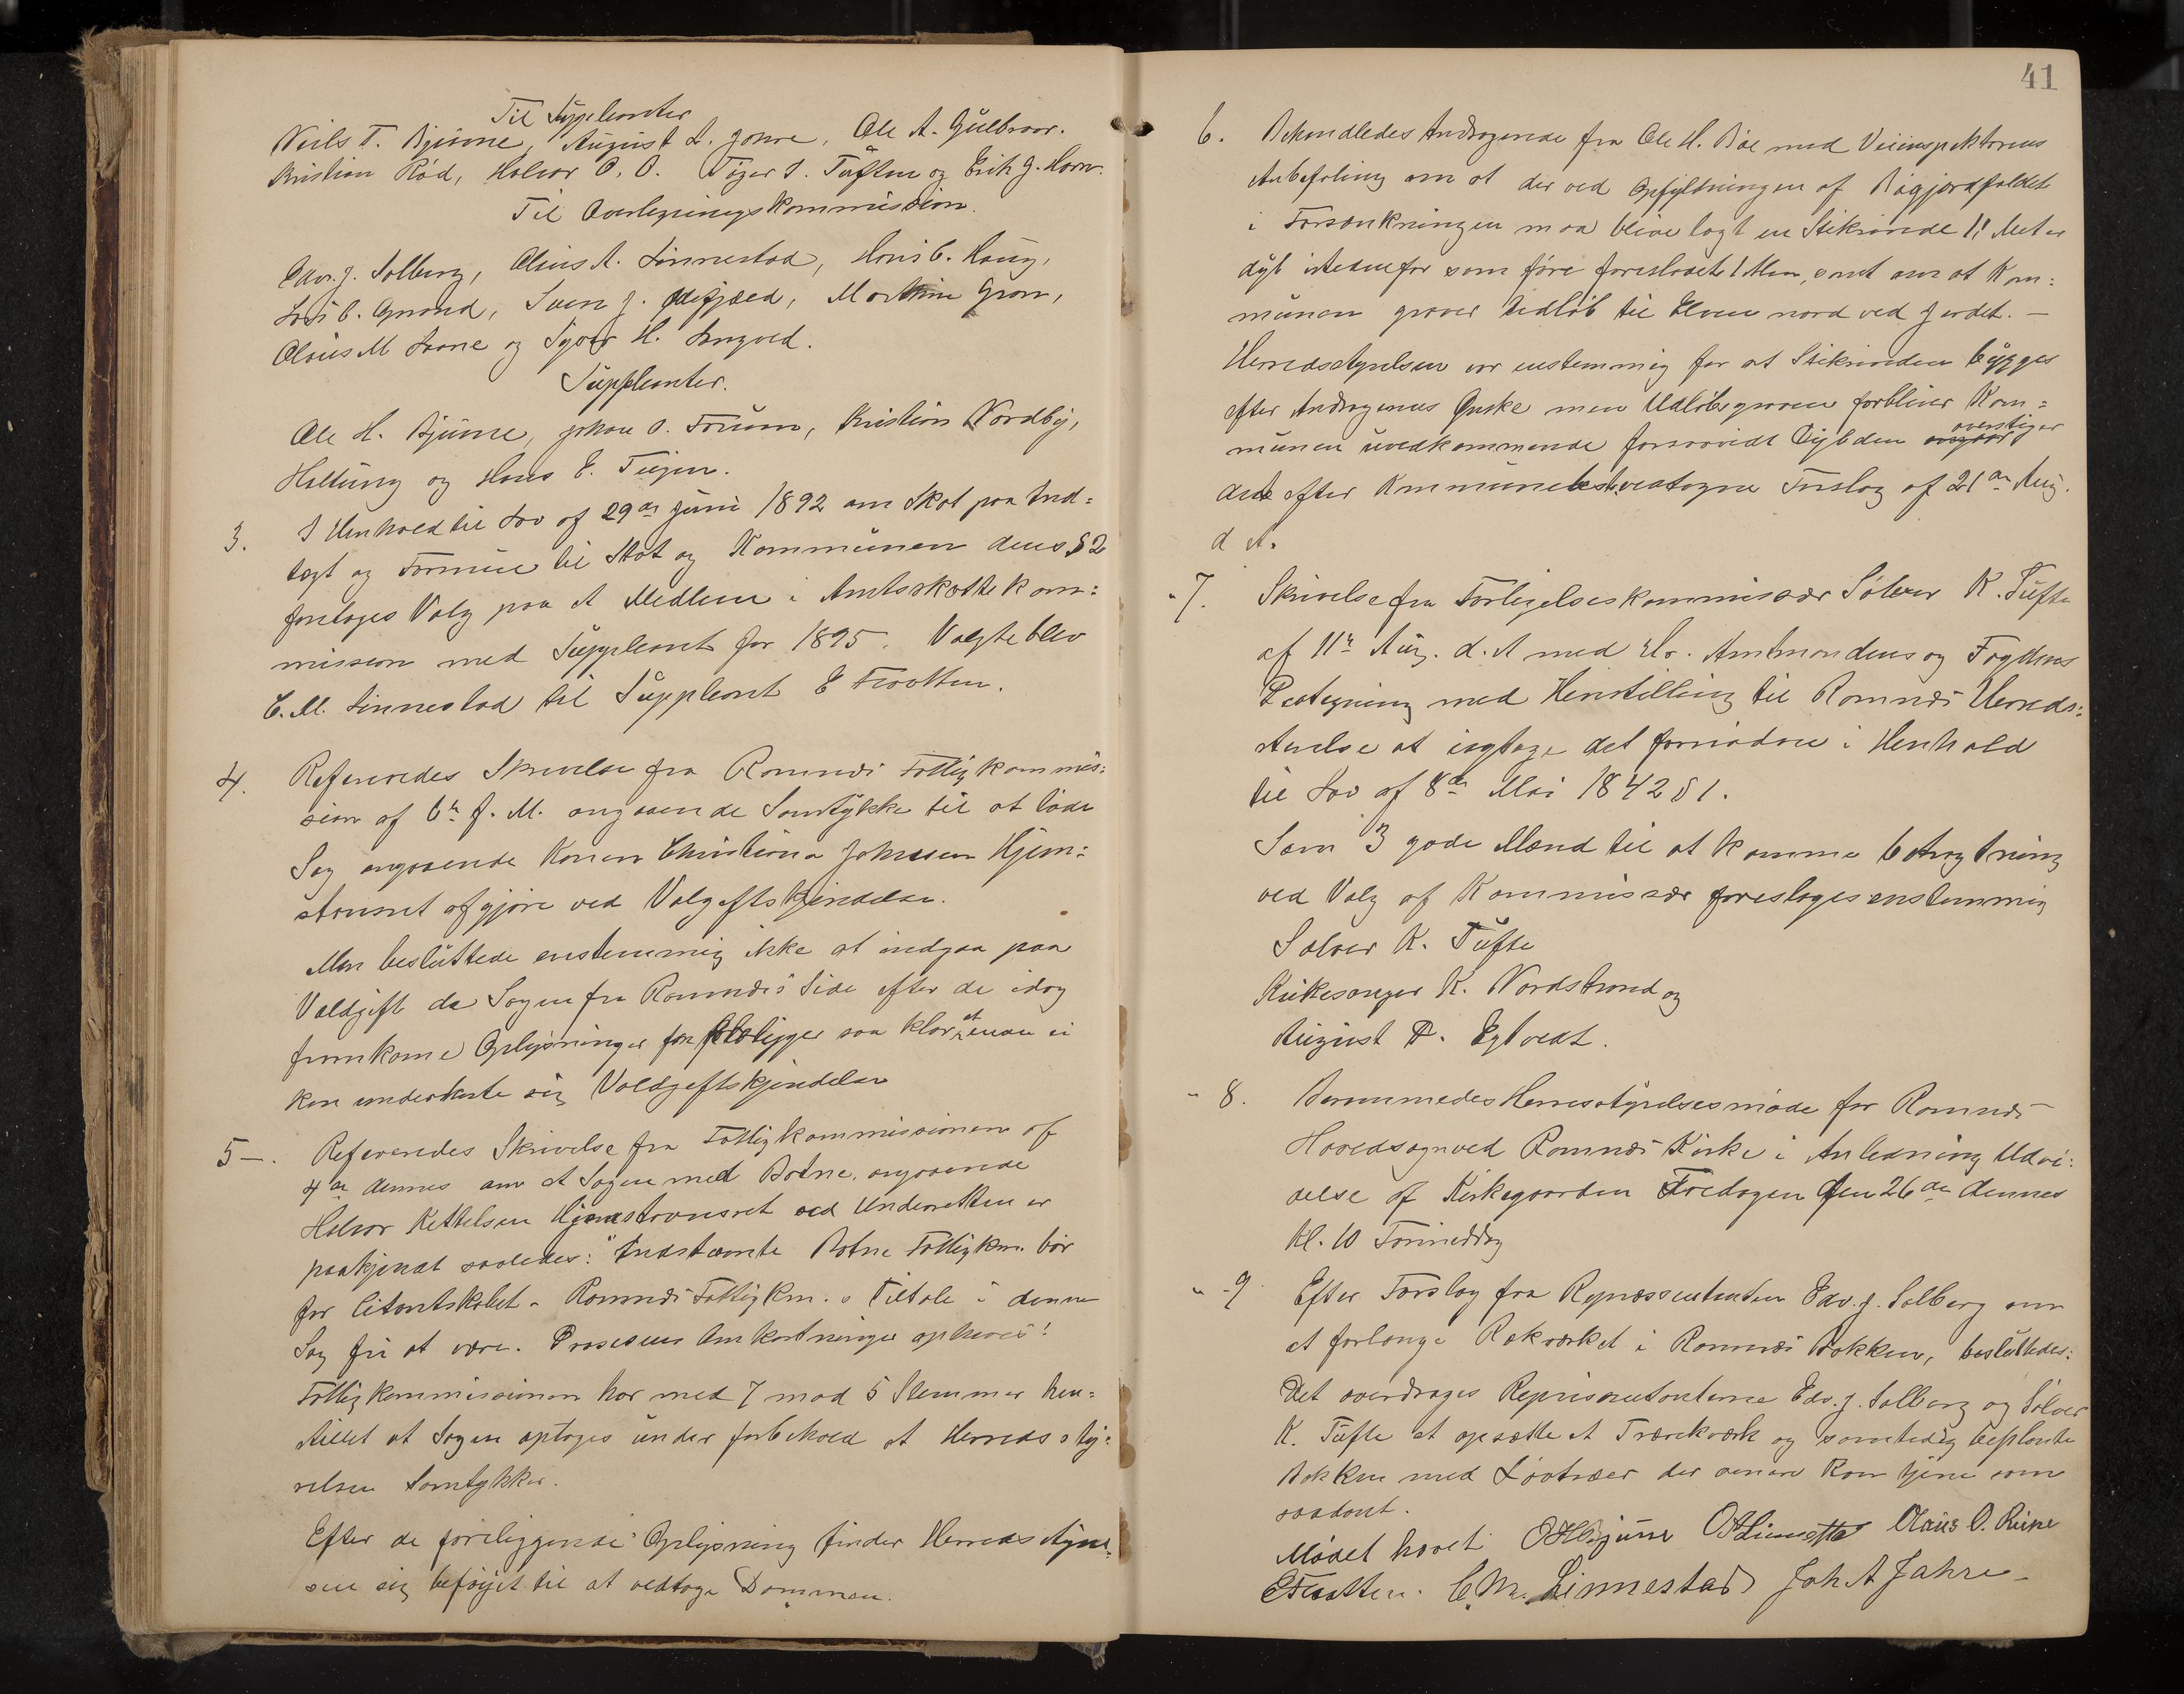 Til Suppleanter
Niels T. Bjuune, August L. Johre, Ole A. Gulbraar.
Kristian Rød, Halvor O. O. Tøger I. Tuften og Erik J. Horn.
Til Overligningskommission.
Edv. J. Solberg, Olaus A. Linnestad, Hans C. Haug,
Lars C. Grorud, Svein J. Mathias Gran,
Olaus M Haane og H. Langved.
Suppleanter.
Ole H. Bjuune, Johan O. Forum, Kristian Nordby,
Haltung og Hans E. Tufjen.
3. I Henhold til Lov af 29de Juni 1892 om Skat paa Ind=
tægt og Formue til Stat og Kommunen dens § 2
foretages Valg paa et Medlem i Amtsskattekom=
mission med Suppleant for 1895. Valgte blev
C. M. Linnestad til Suppleant E Traatten.
4. Refereredes Skrivelse fra Ramnæs Fattigkommis=
sion af 6te f. M. angaaende Samtykke til at lade
Sag angaaende Konen Christiane Johnsen Hjem=
stavnsret afgjøre ved Valgiftskjendelse.
Man besluttede enstemmig ikke at indgaa paa
Voldgift da Sagen fra Ramnæs Side efter de idag
fremkomne Oplysninger foreligger saa klar at man ei
kan underkaste sig Voldgiftskjendelse
5. Refereredes Skrivelse fra Fattigkommissionen af
4de dennes om at Sagen med Botne, angaaende
Halvor Kettelsen Hjemstavnsret ved Underretten er
paakjendt saaledes: "Indstævnte Botne Fattigkm. bør
for Citantskabet - Ramnæs Fattigkm. s Tiltale i denne
Sag fri at være. Processens Omkostninger ophæves!
Fattigkommissionen har med 7 mod 5 Stemmer hen=
stillet at Sagen optages under forbehold at Herredssty=
relsen Samtykker.
Efter de foreliggende Oplysning finder Herredsstyrel=
sen sig beføiet til at vedtage Dommen.
41
6. Behandledes Andragende fra Ole H. Bøe med Veiinspektørens
Anbefaling om at der ved Opfyldningen af Bøgjordfaldet
i Forsænkningen maa blive lagt en Stikrende 1! Meter
dyb istedenfor som før foreslaaet 1 Mtr., samt om at Kom=
munen graver Udløb til Elven nord ved Jordet. —
Herredsstyrelsen var enstemmig for at Stikrenden bygges
efter Andragerens Ønske men Udløbsgraven forbliver Kom=
munen uvedkommende forsaavidt Dybden overstiger
det efter Kommunebestyrelsens Forslag af 21de Aug.
d. A.
"7. Skrivelse fra Forligelseskommissær Sølver K. Tufte
af 11te Aug. d. A med Hr. Amtmandens og Fogdens
Paategning med Henstilling til Ramnæs Herreds=
styrelse at iagtage det fornødne i Henhold
til Lov af 8de Mai 1842 § 1.
Som 3 gode Mænd til at komme i betragtning
ved Valg af Kommissær foreslages enstemmig
Sølver K. Tufte
Kirkesanger K. Nordstrand og
August A. Eytvedt.
" 8. Berammedes Herredsstyrelsesmøde for Ramnæs
Hovedsogn ved Ramnæs Kirke i Anledning Udvi=
delse af Kirkegaarden Fredagen den 26de dennes
Kl. 10 Formiddag
" 9 Efter Forslag fra Repræsentanten Edv. J. Solberg om
at forlænge Rækværket i Ramnæs Bakken, besluttedes:
Det overdrages Repræsentanterne Edv. J. Solberg og Sølver
K. Tufte at opsætte et Trærækværk og samtidig beplante
Bakken med Løvtræer der senere kan tjene som
saadant.
Mødet hævet. OHBjuune OALinnestad Olaus O. Ruine
ETraatten. C. M. Linnestad Joh A Jahre